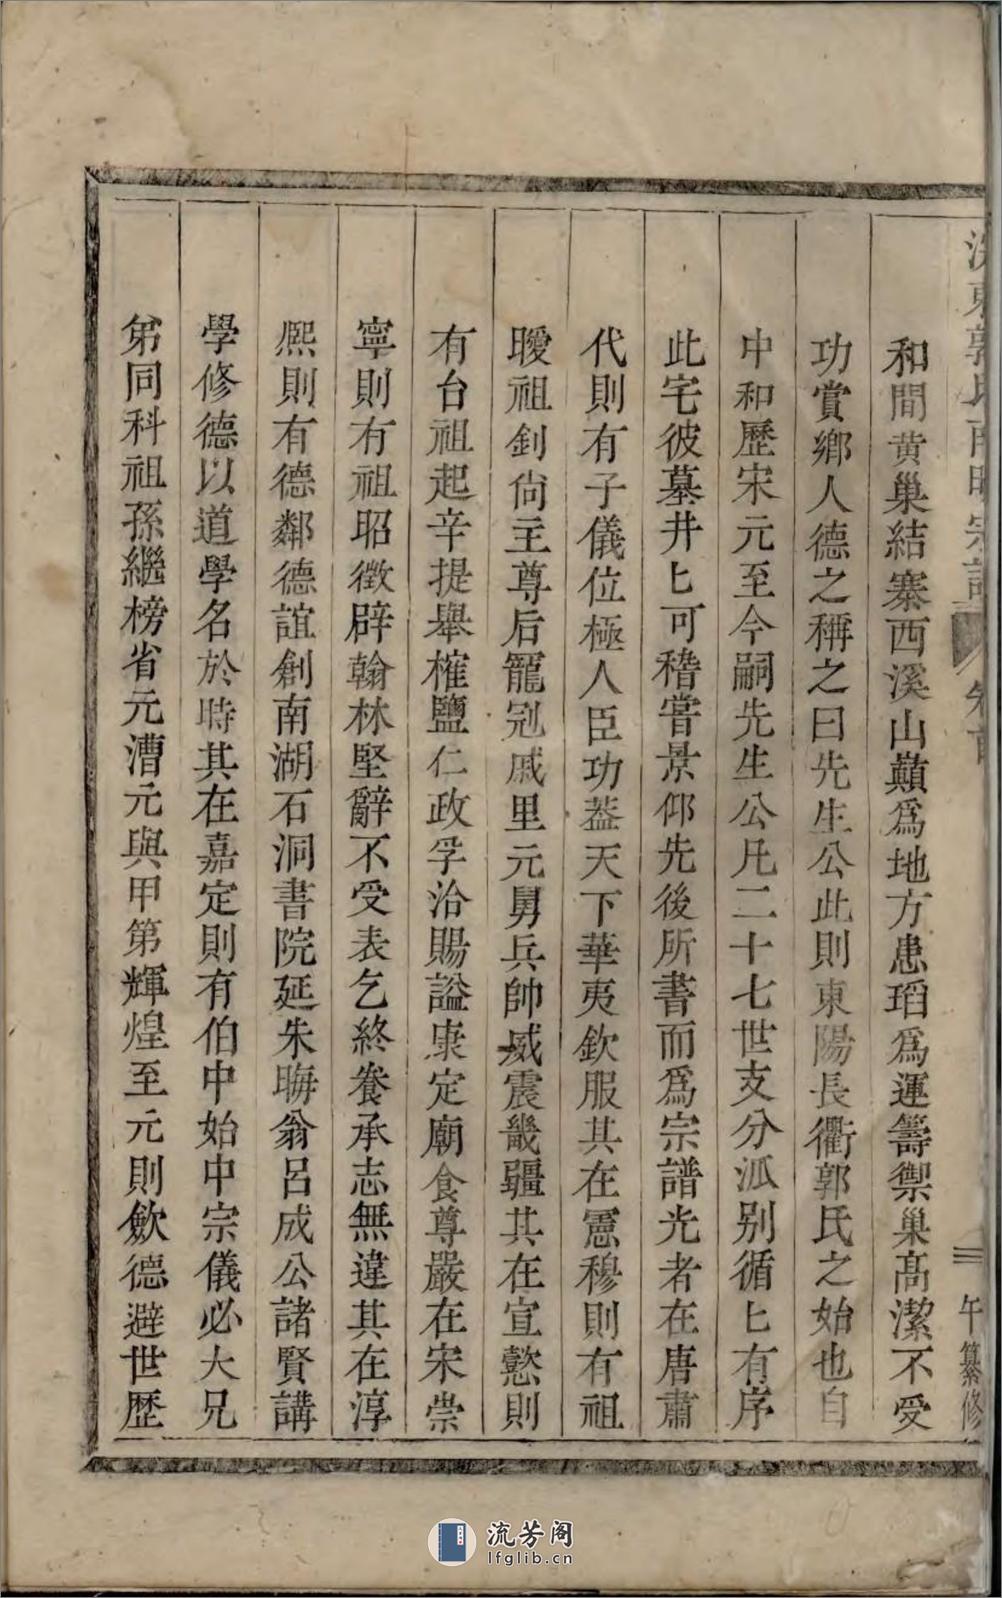 東郭氏南
宗譜
卷首
三
午纂修
和間黄巢結寨西溪山巔為地方患瑫為運籌禦巢高潔不受
功賞鄉人德之稱之曰先生公此則東陽長衢郭氏之始也自
中和歷宋元至今嗣先生公凡二十七世支分泒别循匕有序
此宅彼墓井匕可稽嘗景仰先後所書而為宗譜光者在唐肅
代則有子儀位極人臣功葢天下華夷欽服其在憲穆則有祖
曖祖釗尙主尊后寵冠戚里元舅兵帥威震畿疆其在宣懿則
有台祖起辛提舉榷鹽仁政孚洽賜謚康定廟食尊嚴在宋崇
寧則有祖昭徵辟翰林堅辭不受表乞終養承志無違其在淳
熈則有德鄰德誼創南湖石洞書院延朱晦翁呂成公諸賢講
學修德以道學名於時其在嘉定則有伯中始中宗儀必大兄
弟同科祖孫繼榜省元漕元與甲第輝煌至元則歛德避世歷
流芳阁
lfglib.cn